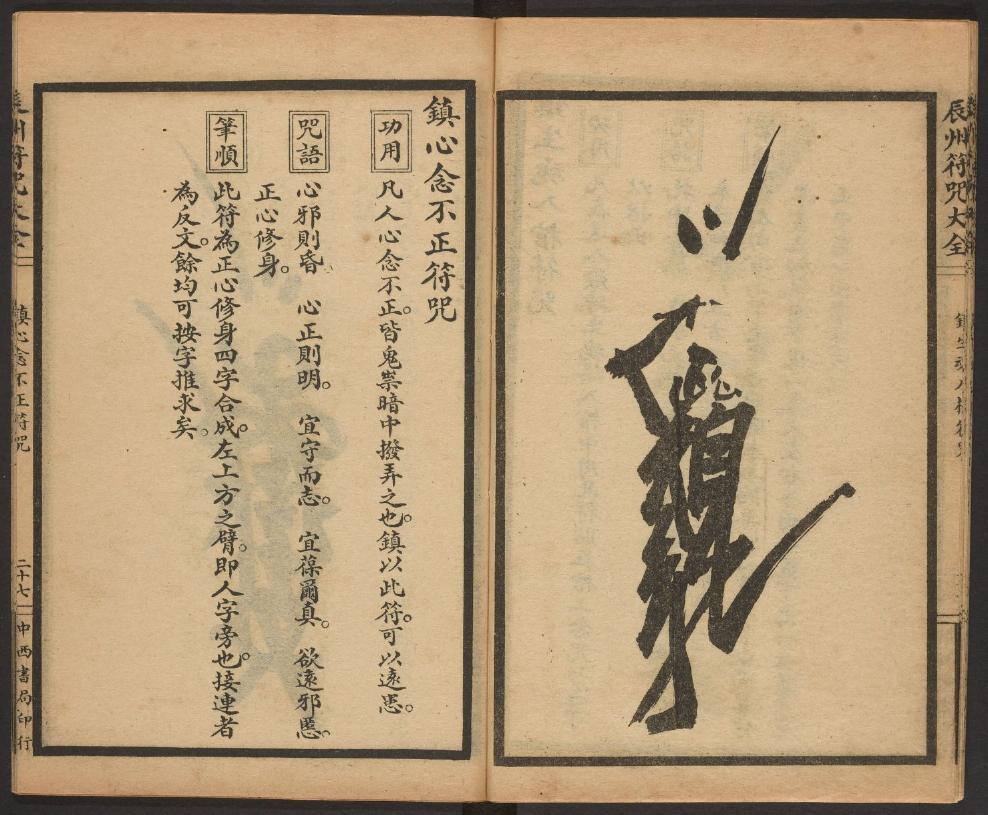 辰州符咒大全
鎮心念不正符咒
功用
凡人心念不正。皆鬼祟暗中撥弄之也。鎮以此符。可以遠患。
咒語
心邪則昏。　心正則明。　宜守而志。　宜葆爾真。　欲遠邪慝。
正心修身。
筆順
此符為正心修身四字合成。左上方之臂。即人字旁也。接連者
為反文。餘均可按字推求矣。
鎮心念不正符咒
二十七
中西書局印行